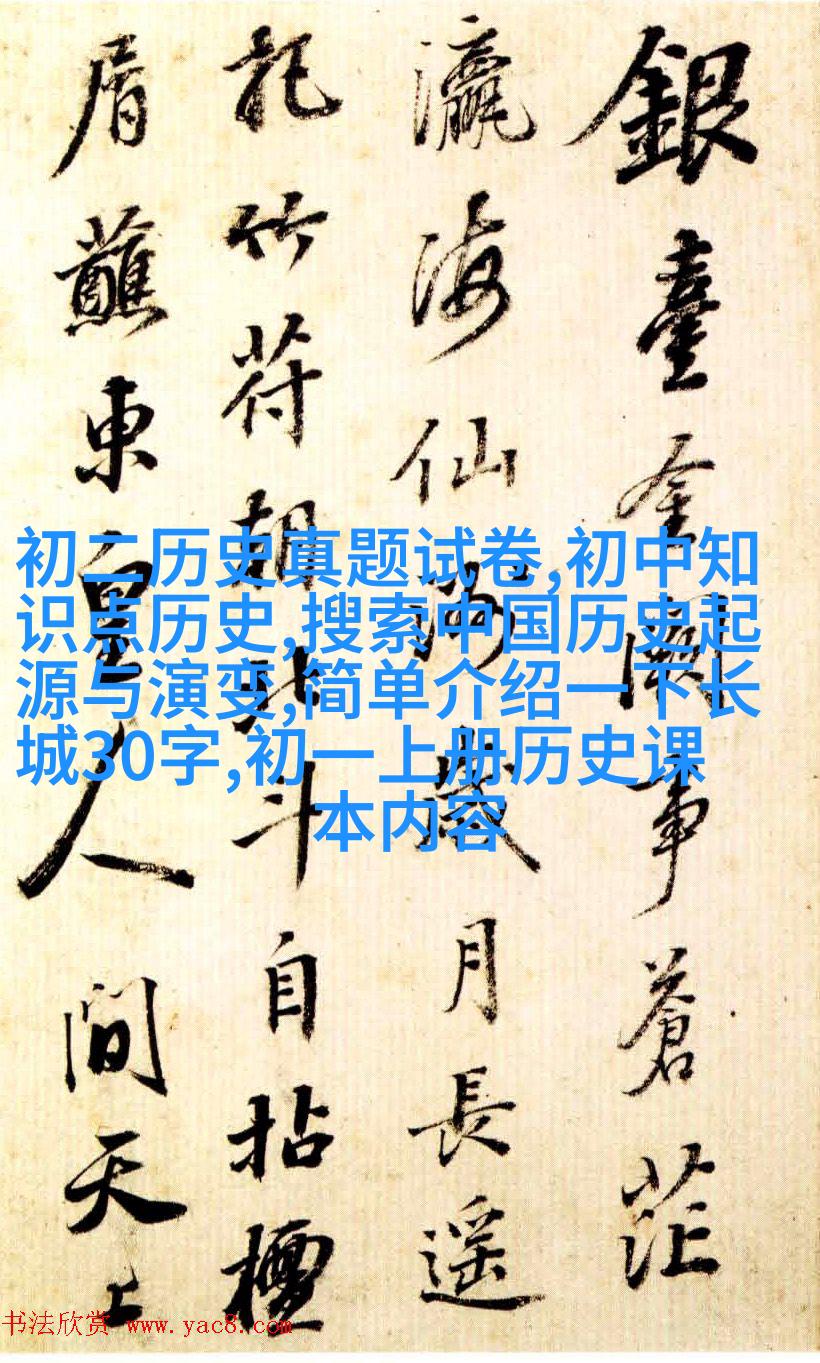 銀臺金闕事蒼茫
瀛海仙歲月長遥
記竹符朝北斗自拈檀
屑蘸東皇人間天上
初二历史真题试卷,初中知
识点历史,搜索中国历史起
源与演变,简单介绍一下长
城30字,初一上册历史课
本内容
书法欣赏 www.yac8.com